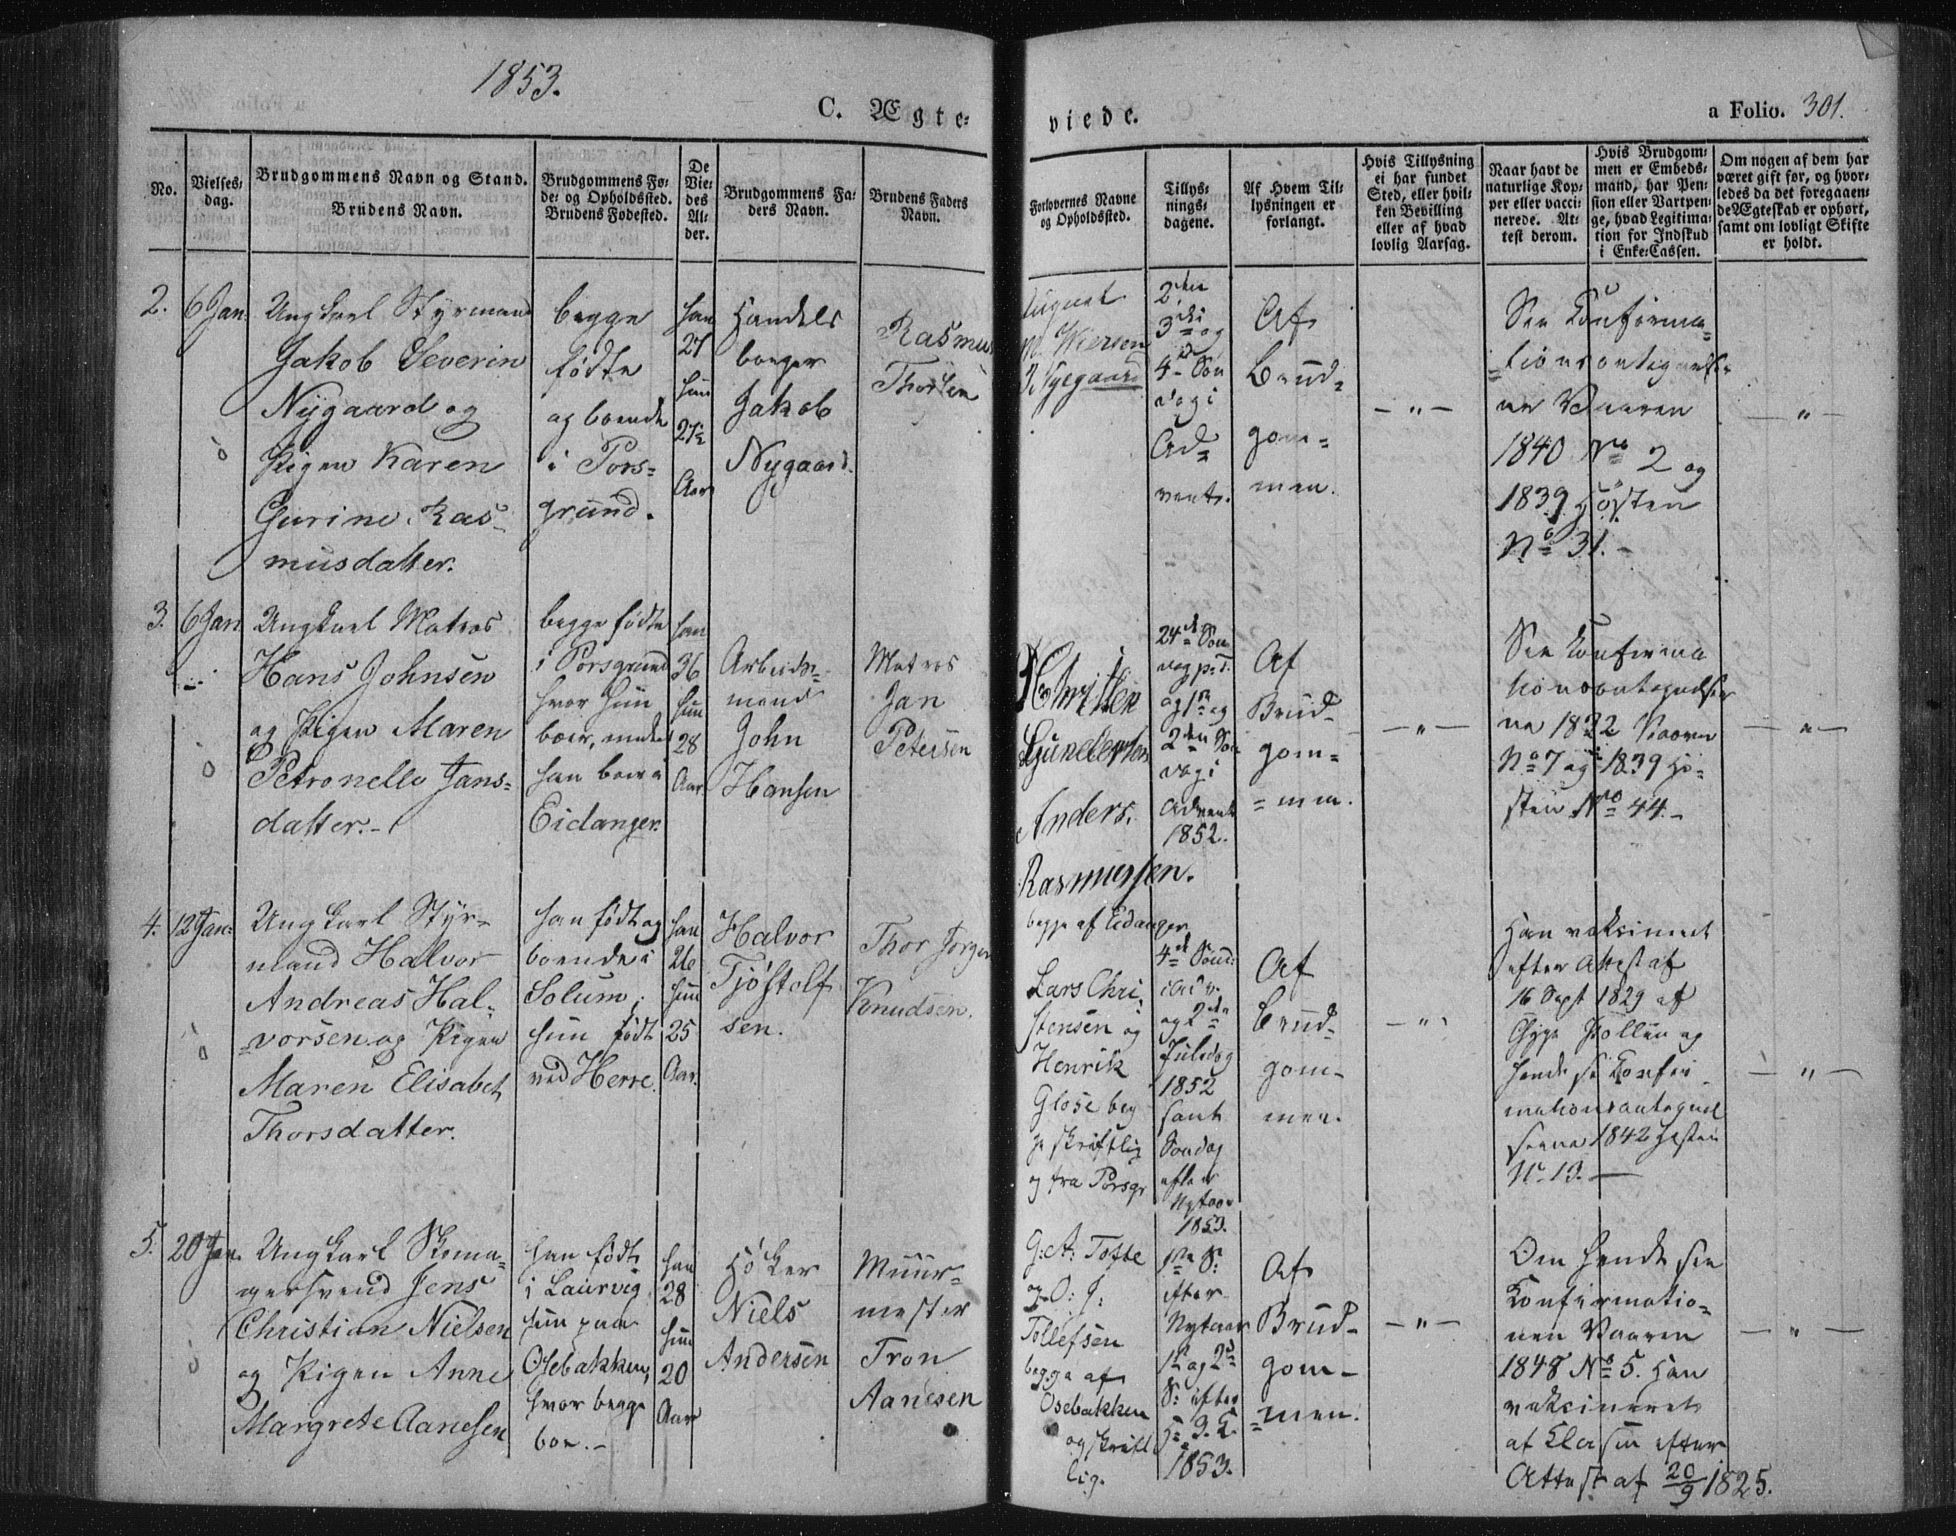 1853.
C. Ægte-
viede.
a Folio. 301.
No.
Vielses-
dag.
Brudgommens Navn og Stand.
Brudens Navn.
Brudgommens Fø-
de- og Opholdssted.
Brudens Fødested.
De
Vie-
des
Al-
der.
Brudgommens Fa-
ders Navn.
Brudens Faders
Navn.
Forlovernes Navne
og Opholdssted.
Tillys-
nings-
dagene.
Af Hvem Til-
lysningen er
forlangt.
Hvis Tillysning
ei har fundet
Sted, eller hvil-
ken Bevilling
eller af hvad
lovlig Aarsag.
Naar havt de
naturlige Kop-
per eller vacci-
nerede. At-
test derom.
Hvis Brudgom-
men er Embeds-
mand, har Pen-
sion eller Vartpen-
ge, hvad Legitima-
tion for Indskud
i Enke-Cassen.
Om nogen af dem har
været gift før, og hvor-
ledes da det foregaaen-
de Ægteskab er ophørt,
samt om lovligt Skifte
er holdt.
2.
6 Jan.
Ungkarl Styrmand
Jakob Severin
Nygaard og
Pigen Karen
Gurine Ras-
musdatter.
begge
fødte
og boende
i Pors-
grund.
han
27
hun
27½
Aar
Handels
borger
Jakob
Nygaard.
Rasmus
Thorsen
August
M. Wiersen
J. Nygaard
2den
3die og
4de Søn
dag i
Ad-
vent.
Af
Brud-
gom-
men.
- " -
See Konfirma-
tionsantegnelse
ne Vaaren
1840 No 2 og
1839 Høsten
No 31. -
- " -
3.
6 Jan.
Ungkarl Matros
Hans Johnsen
og Pigen Maren
Petronelle Jans-
datter. -
begge fødte
i Porsgrund
hvor hun
boer, medens
han boer i
Eidanger.
han
36
hun
28
Aar.
Arbeids-
mand
John
Hansen
Matros
Jan
Petersen
Christen
Gundersen
Anders.
Rasmussen.
begge af Eidanger
24de Søn
dag p. T.
og 1ste og
2den Søn
dag i
Advent
1852.
Af
Brud-
gom-
= men.
- " -
See Konfirma
tionsantegnelser
ne 1832 Vaaren
No 7 og 1839 Hø-
sten No 44. -
- " -
4.
12 Jan.
Ungkarl Styr-
mand Halvor
Andreas Hal-
vorsen og Pigen
Maren Elisabet
Thorsdatter.
han født og
boende i
Solum,
hun født
ved Herre.
han
26
hun
25
Aar.
Halvor
Tjøstolf
sen.
Thor Jørgen
Knudsen.
Lars Chri-
stensen og
Henrik
Glose beg
ge skriftlig
og fra Porsgr
4de Sønd:
i Adv.
og 2den
Juledag
1852
samt
Søndag
efter
Nytaar
1853.
Af
Brud-
gom-
men.
- " -
Han vaksineret
efter Attest af
16 Sept 1829 af
Tollen og
hende se Konfir
mationsantegnel
serne 1842 Høsten
No 13. -
- " -
5.
20 Jan.
Ungkarl Skoma-
gersvend Jens
Christian Nielsen
og Pigen Anne
Margrete Aanesen
han født
i Laurvig
hun paa
Osebakken,
hvor begge
boe. -
han
28
hun
20
Aar
Høker
Niels
Andersen
Muur-
mester
Tron
Aanesen
G: A: Tofte
og O: J:
Tollefsen
begge af
Osebakken
og skrift
lig.
1ste S:
efter
Nytaar
1ste og 2den
S: efter
H. 3. K.
1853.
Af
Brud-
gom-
= men.
- " -
Om hende see
Konfirmatio-
nen Vaaren
1848 No 5. Han
vaksineret
af Klasen efter
Attest af 20/9 1825.
- " -